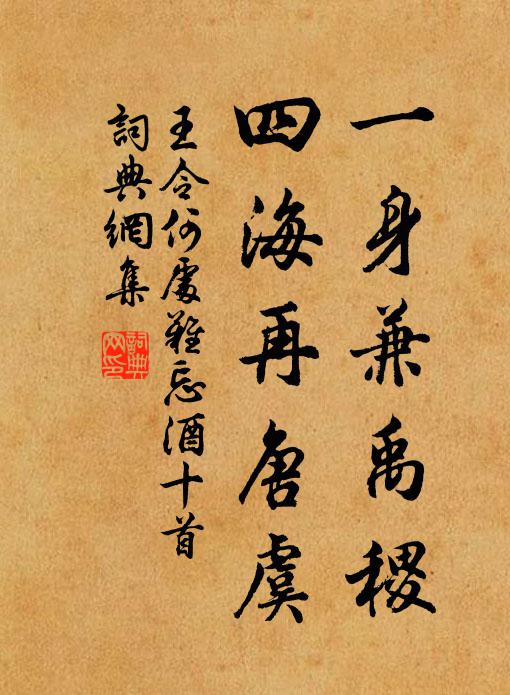 一身兼禹稷
四海再唐虞
王令何處難忘酒十首
詞典網集
詞典網印